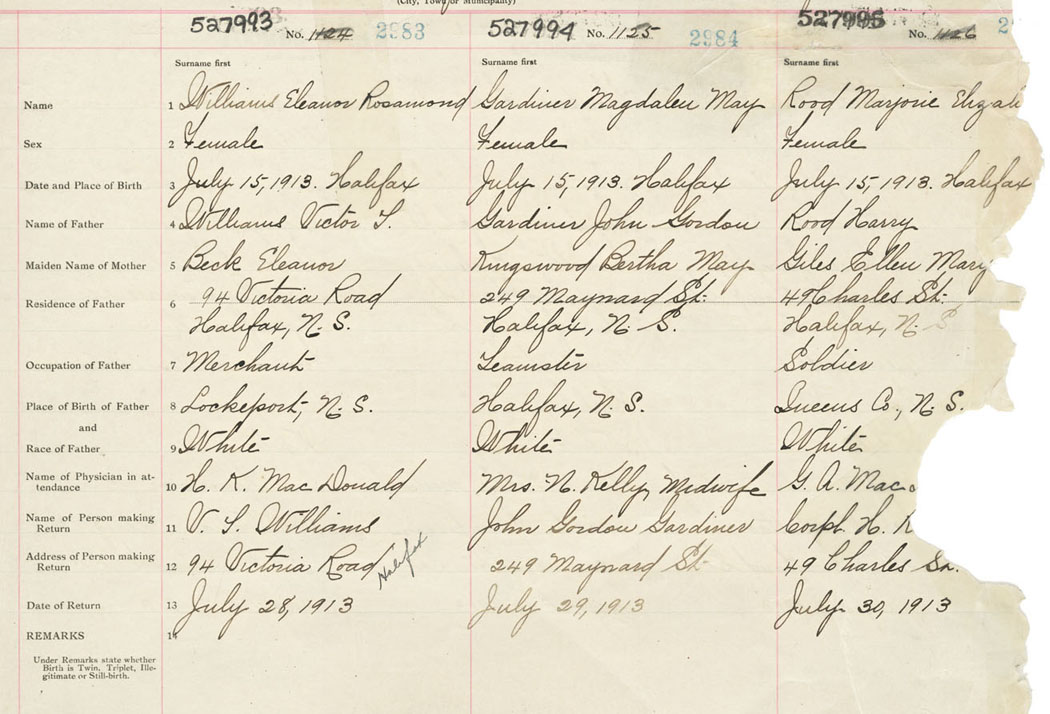 (City, Town or Municipality)
527993 No. 1124 2983 527994 No. 1125 2984 527995 No. 1126
Surname first Surname first Surname first
Name 1 Williams Eleanor Rosamond Gardiner Magdalen May Rood Marjorie
Sex 2 Female Female Female
Date and Place of Birth 3 July 15, 1913. Halifax July 15, 1913. Halifax July 15, 1913. Halifax
Name of Father 4 Williams Victor S. Gardiner John Gordon Rood Harry
Maiden Name of Mother 5 Beck Eleanor Kingswood Bertha May Giles Ellen Mary
Residence of Father 6 94 Victoria Road 249 Maynard St. 49 Charles St.
Halifax, N. S. Halifax, N. S. Halifax, N. S
Occupation of Father 7 Merchant Teamster Soldier
Place of Birth of Father 8 Lockeport, N. S. Halifax, N. S. Queens Co., N. S.
and
Race of Father 9 White White White
Name of Physician in at-
tendance 10 H. K. MacDonald Mrs. N. Kelly Midwife G. A. Mac
Name of Person making
Return 11 V. S. Williams John Gordon Gardiner Corpl. H.
Address of Person making
Return 12 94 Victoria Road Halifax 249 Maynard St 49 Charles St.
Date of Return 13 July 28, 1913 July 29, 1913 July 30, 1913
REMARKS 14
Under Remarks state whether
Birth is Twin, Triplet, Ille-
gitimate or Still-birth.